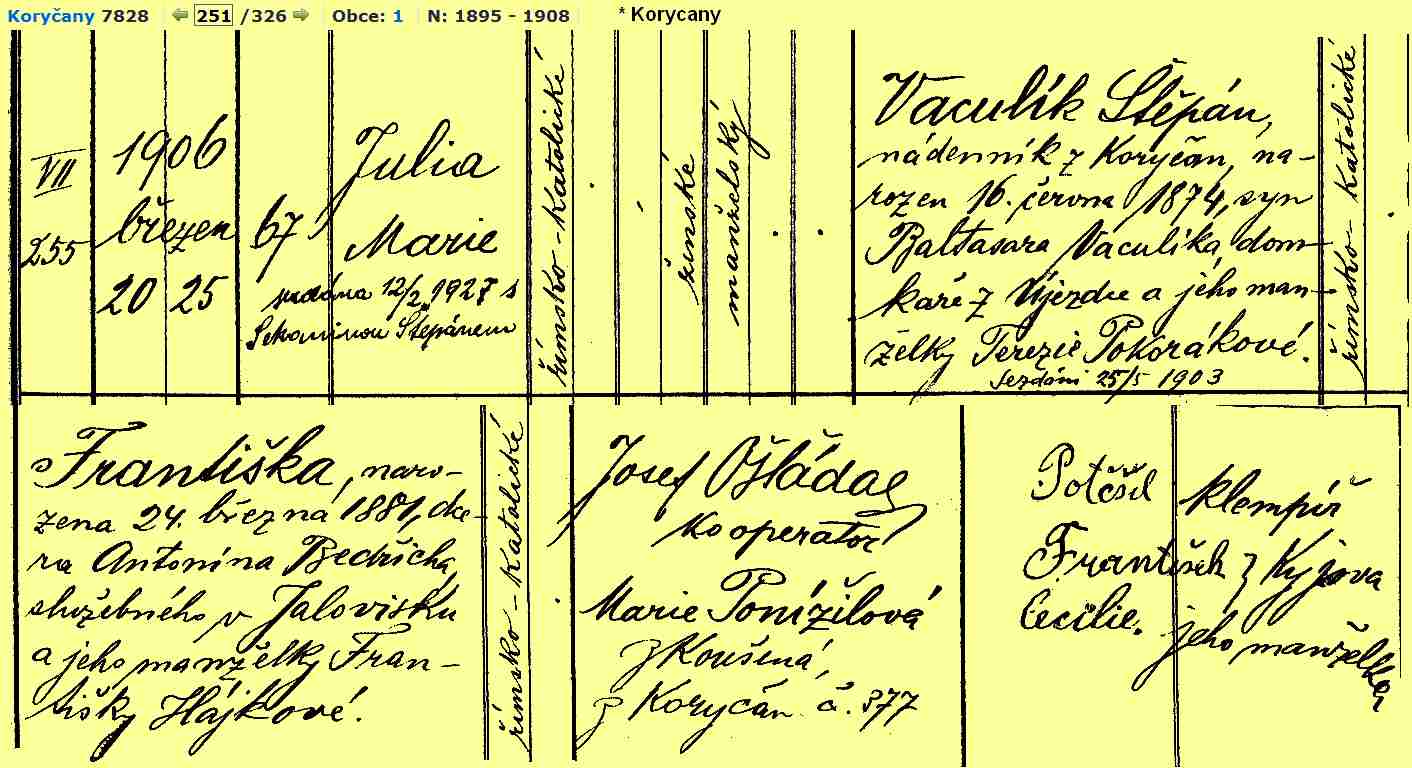 Koryčany 7828 251 /326 Obce: 1 N: 1895 - 1908 * Korycany
VII
255
1906
březen
20 25
67
Julia
Marie
oddána 12/2 1927 s
Štěpánem
římsko-katolické
ženské
manželský
Vaculík Štěpán,
nádenník z Koryčan, na-
rozen 16. června 1874, syn
Baltasara Vaculíka, dom-
káře z Újezdu a jeho man-
želky Terezie Pokorákové.
Sezdáni 25/5 1903
římsko-katolické
Františka, naro-
zena 24. března 1881, dce-
ra Antonína Bedřicha,
služebného v Jalovisku
a jeho manželky Fran-
tišky Hájkové.
římsko-katolické
Josef Ošťádal
kooperator
Marie Ponížilová
zkoušená,
z Koryčan č. 377
Potěšil
František
Cecilie.
klempíř
z Kyjova
jeho manželka